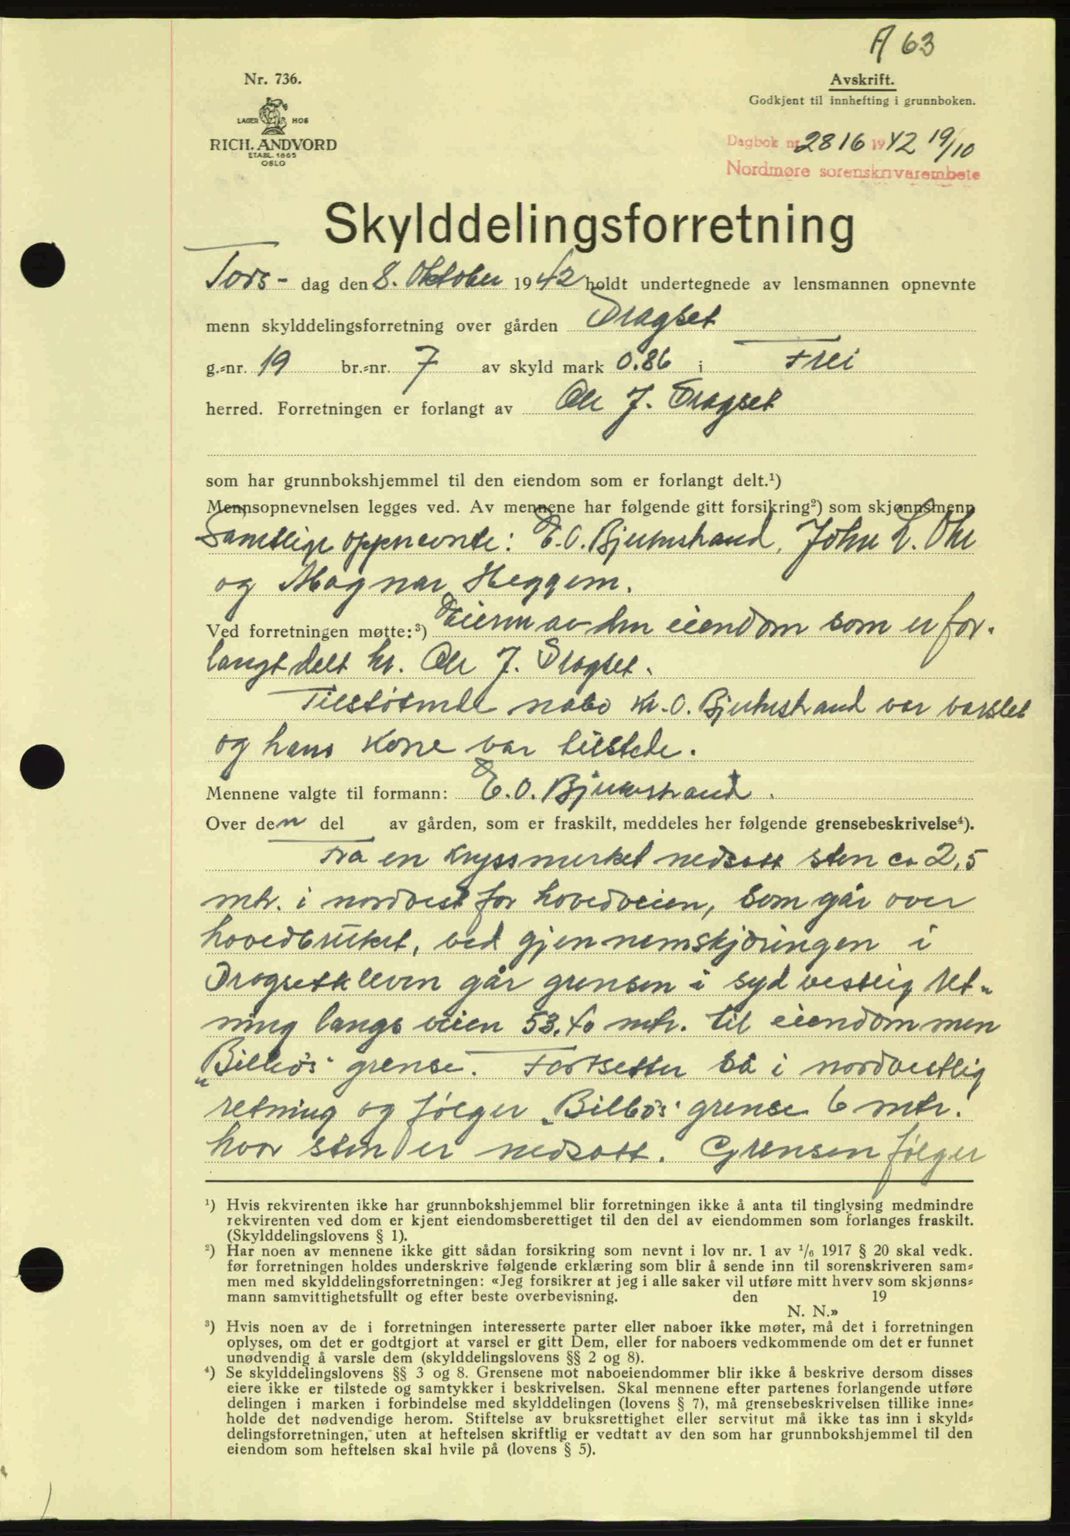 A 63
Nr. 736.
LAGER HOS
RICH. ANDVORD
ETABL. 1865
OSLO
Avskrift.
Godkjent til innhefting i grunnboken.
Dagbok nr. 2816 1942 19/10
Nordmøre sorenskriverembete
Skylddelingsforretning
Tors- dag den 8. Oktober 1942 holdt undertegnede av lensmannen opnevnte
menn skylddelingsforretning over gården Dragset
g.-nr. 19 br.-nr. 7 av skyld mark 0.86 i Frei
herred. Forretningen er forlangt av Ole J. Dragset
som har grunnbokshjemmel til den eiendom som er forlangt delt.¹)
Mennsopnevnelsen legges ved. Av mennene har følgende gitt forsikring²) som skjønnsmenn
Samtlige oppnevnte: E. O. Bjerkestrand, John L. Ohr
og Magnar Heggem.
Ved forretningen møtte:³) Eieren av den eiendom som er for-
langt delt hr. Ole J. Dragset.
Tilstøtende nabo Kr. O. Bjerkestrand var varslet
og hans kone var tilstede.
Mennene valgte til formann: E. O. Bjerkestrand.
Over den del av gården, som er fraskilt, meddeles her følgende grensebeskrivelse⁴).
Fra en kryssmerket nedsatt sten ca 2,5
mtr. i nordvest for hovedveien, som går over
hovedbruket, ved gjennemskjæringen i
Dragsetkleven går grensen i sydvestlig ret-
ning langs veien 53,40 mtr. til eiendommen
"Billbós" grense. Fortsetter så i nordvestlig
retning og følger "Billbós" grense 6 mtr.
hvor sten er nedsatt. Grensen følger
¹) Hvis rekvirenten ikke har grunnbokshjemmel blir forretningen ikke å anta til tinglysing medmindre
rekvirenten ved dom er kjent eiendomsberettiget til den del av eiendommen som forlanges fraskilt.
(Skylddelingslovens § 1).
²) Har noen av mennene ikke gitt sådan forsikring som nevnt i lov nr. 1 av 1/6 1917 § 20 skal vedk.
før forretningen holdes underskrive følgende erklæring som blir å sende inn til sorenskriveren sam-
men med skylddelingsforretningen: «Jeg forsikrer at jeg i alle saker vil utføre mitt hverv som skjønns-
mann samvittighetsfullt og efter beste overbevisning. den 19
N. N.»
³) Hvis noen av de i forretningen interesserte parter eller naboer ikke møter, må det i forretningen
oplyses, om det er godtgjort at varsel er gitt Dem, eller for naboers vedkommende om det er funnet
unødvendig å varsle dem (skylddelingslovens §§ 2 og 8).
⁴) Se skylddelingslovens §§ 3 og 8. Grensene mot naboeiendommer blir ikke å beskrive dersom disses
eiere ikke er tilstede og samtykker i beskrivelsen. Skal mennene efter partenes forlangende utføre
delingen i marken i forbindelse med skylddelingen (lovens § 7), må grensebeskrivelsen tillike inne-
holde det nødvendige herom. Stiftelse av bruksrettighet eller servitut må ikke tas inn i skyld-
delingsforretningen, uten at heftelsen skriftlig er vedtatt av den som har grunnbokshjemmel til den
eiendom som heftelsen skal hvile på (lovens § 5).